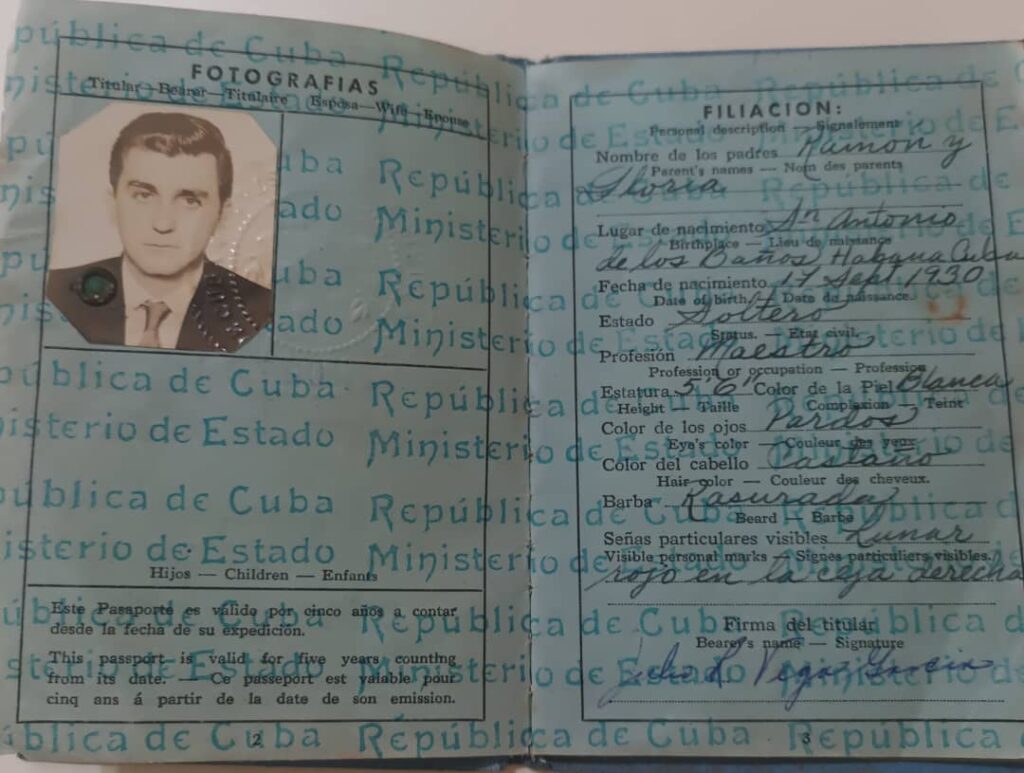 FOTOGRAFIAS
Titular — Bearer — Titulaire Esposa — Wife — Epouse
Hijos — Children — Enfants
Este Pasaporte es válido por cinco años a contar
desde la fecha de su expedición.
This passport is valid for five years counting
from its date. — Ce passeport est valable pour
cinq ans á partir de la date de son emission.
2
FILIACION:
Personal description — Signalement
Nombre de los padres Ramon y
Parent's names — Nom des parents
Gloria
Lugar de nacimiento Sn Antonio
Birthplace — Lieu de naistance
de los Baños Habana Cuba
Fecha de nacimiento 17 Sept. 1930
Date of birth — Date du naissance.
Estado Soltero
Status. — Etat civil.
Profesión Maestro
Profession or occupation — Profession
Estatura 5' 6" Color de la Piel Blanca
Height — Taille Complexion — Teint
Color de los ojos Pardos
Eye's color — Couleur des yeux
Color del cabello Castaño
Hair color — Couleur des cheveux.
Barba Rasurada
Beard — Barbe
Señas particulares visibles Lunar
Visible personal marks — Signes particuliers visibles.
rojo en la ceja derecha
Firma del titular
Bearer's name — Signature
Vega García
3
República de Cuba
Ministerio de Estado